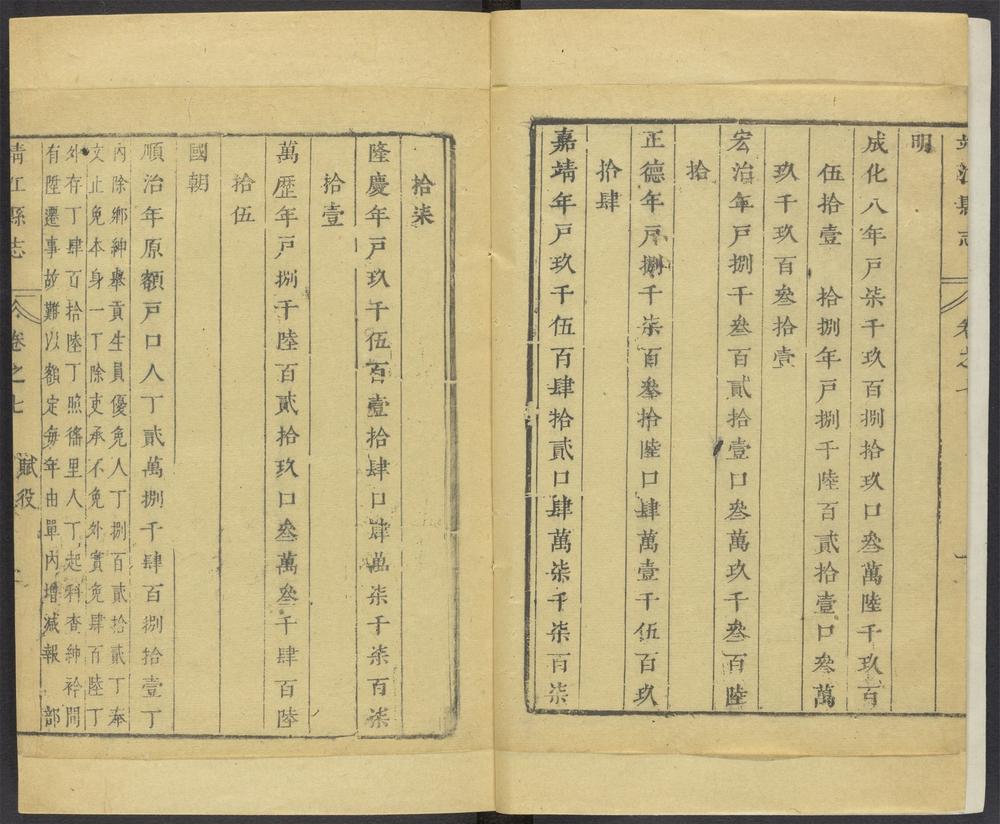 靖江縣志
卷之七
明
成化八年戸柒千玖百捌拾玖口叁萬陸千玖百
伍拾壹　拾捌年戸捌千陸百貳拾壹口叁萬
玖千玖百叁拾壹
宏治年戸捌千叁百貳拾壹口叁萬玖千叁百陸
拾
正德年戸捌千柒百叁拾陸口肆萬壹千伍百玖
拾肆
嘉靖年戸玖千伍百肆拾貳口肆萬柒千柒百柒
拾柒
隆慶年戸玖千伍百壹拾肆口肆萬柒千柒百柒
拾壹
萬歷年戸捌千陸百貳拾玖口叁萬叁千肆百陸
拾伍
國朝
順治年原額戸口人丁貳萬捌千肆百捌拾壹丁
內除鄉紳舉貢生員優免人丁捌百貳拾貳丁奉
文止免本身一丁除吏承不免外實免肆百陸丁
外存丁肆百拾陸丁照徭里人丁起科查紳衿間
有陞遷事故難以額定每年由單內增減報　部
靖江縣志
卷之七
賦役